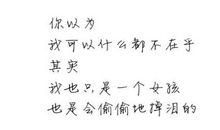 你以为
我可以什么都不在乎
其实
我也只是一个女孩
也是会偷偷地掉泪的